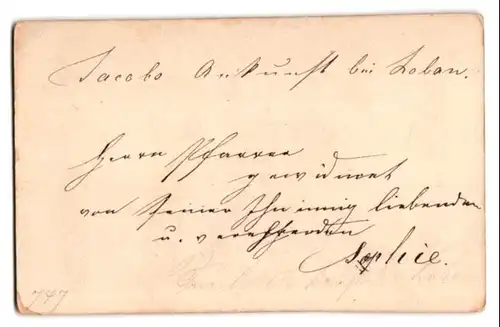 Jacobs Ankunft bei Laban.
Herrn Pfarrer
gewidmet
von seiner Ihn innig liebenden
u. verehrenden
Sophie.
747